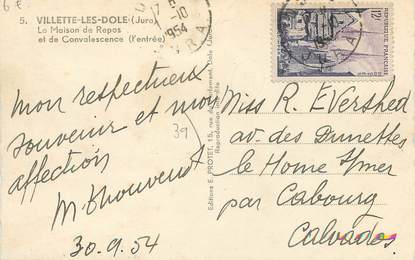 6€
5. VILLETTE-LES-DOLE (Jura)
La Maison de Repos
et de Convalescence (l'entrée)
1954
JURA
12F
REPUBLIQUE FRANÇAISE
Mon respectueux
souvenir et mon
affection
M. Thouvenot
30.9.54
39
Editions E. PROTET, 15, rue
Dole (Jura)
Reproduction interdite
Miss R. Evershed
av. des Dunettes
le Home s/mer
par Cabourg
Calvados